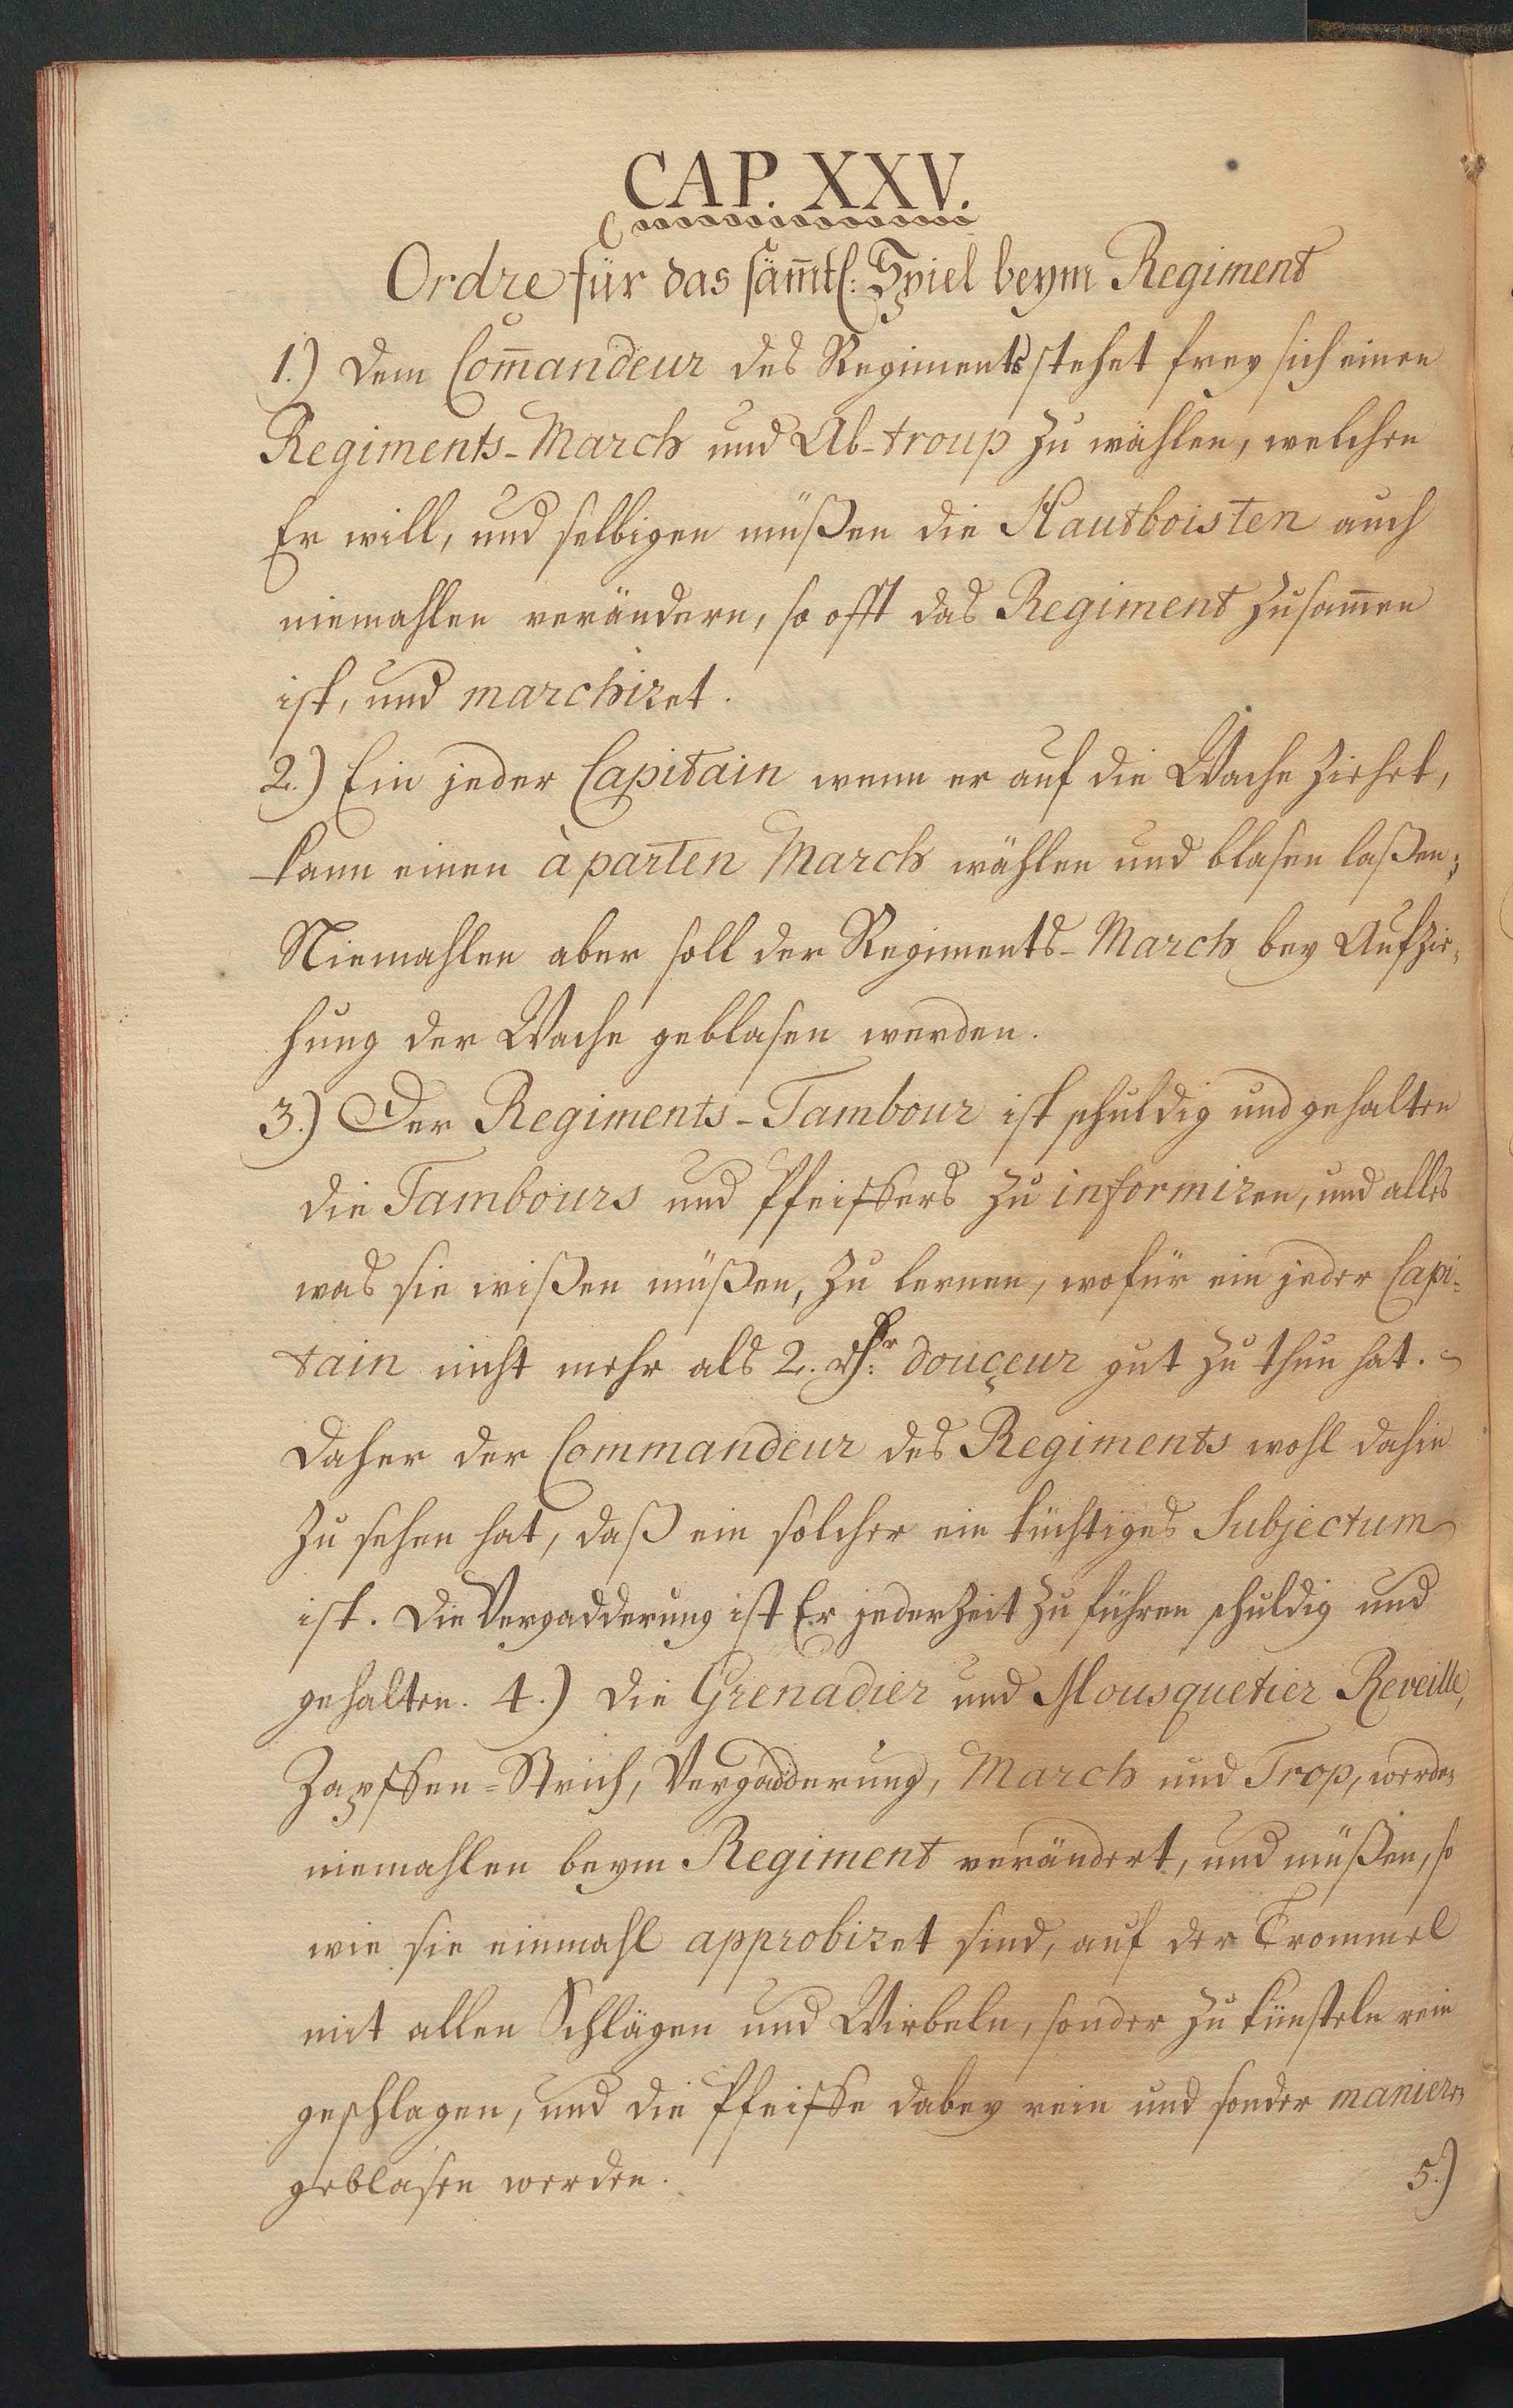 CAP. XXV.
Ordre für das säm̄tl: Spiel beym Regiment
1.) Dem Com̄andeur des Regiments stehet frey sich einen
Regiments-March und Ab-troup zu wählen, welchen
Er will, und selbigen müßen die Hautboisten auch
niemahlen verändern, so offt das Regiment zusam̄en
ist, und marchiret.
2.) Ein jeder Capitain wenn er auf die Wache ziehet,
kann einen à parten March wählen und blasen laßen;
Niemahlen aber soll der Regiments-March bey Aufzie-
hung der Wache geblasen werden.
3.) Der Regiments-Tambour ist schuldig und gehalten
die Tambours und Pfeiffers zu informiren, und alles
was sie wißen müßen, zu lernen, wofür ein jeder Capi-
tain nicht mehr als 2. douçeur gut zu thun hat.
Daher der Commandeur des Regiments wohl dahin
zu sehen hat, daß ein solcher ein tüchtiges Subjectum
ist. Die Vergadderung ist Er jederzeit zu führen schuldig und
gehalten. 4.) Die Grenadier und Mousquetier Reveille,
Zapffen-Strich, Vergadderung, March und Trop, werden
niemahlen beym Regiment verändert, und müßen, so
wie sie einmahl approbiret sind, auf der Trommel
mit allen Schlägen und Wirbeln, sonder zu künsteln rein
geschlagen, und die Pfeiffe dabey rein und sonder manieren
geblasen werden.
5.)